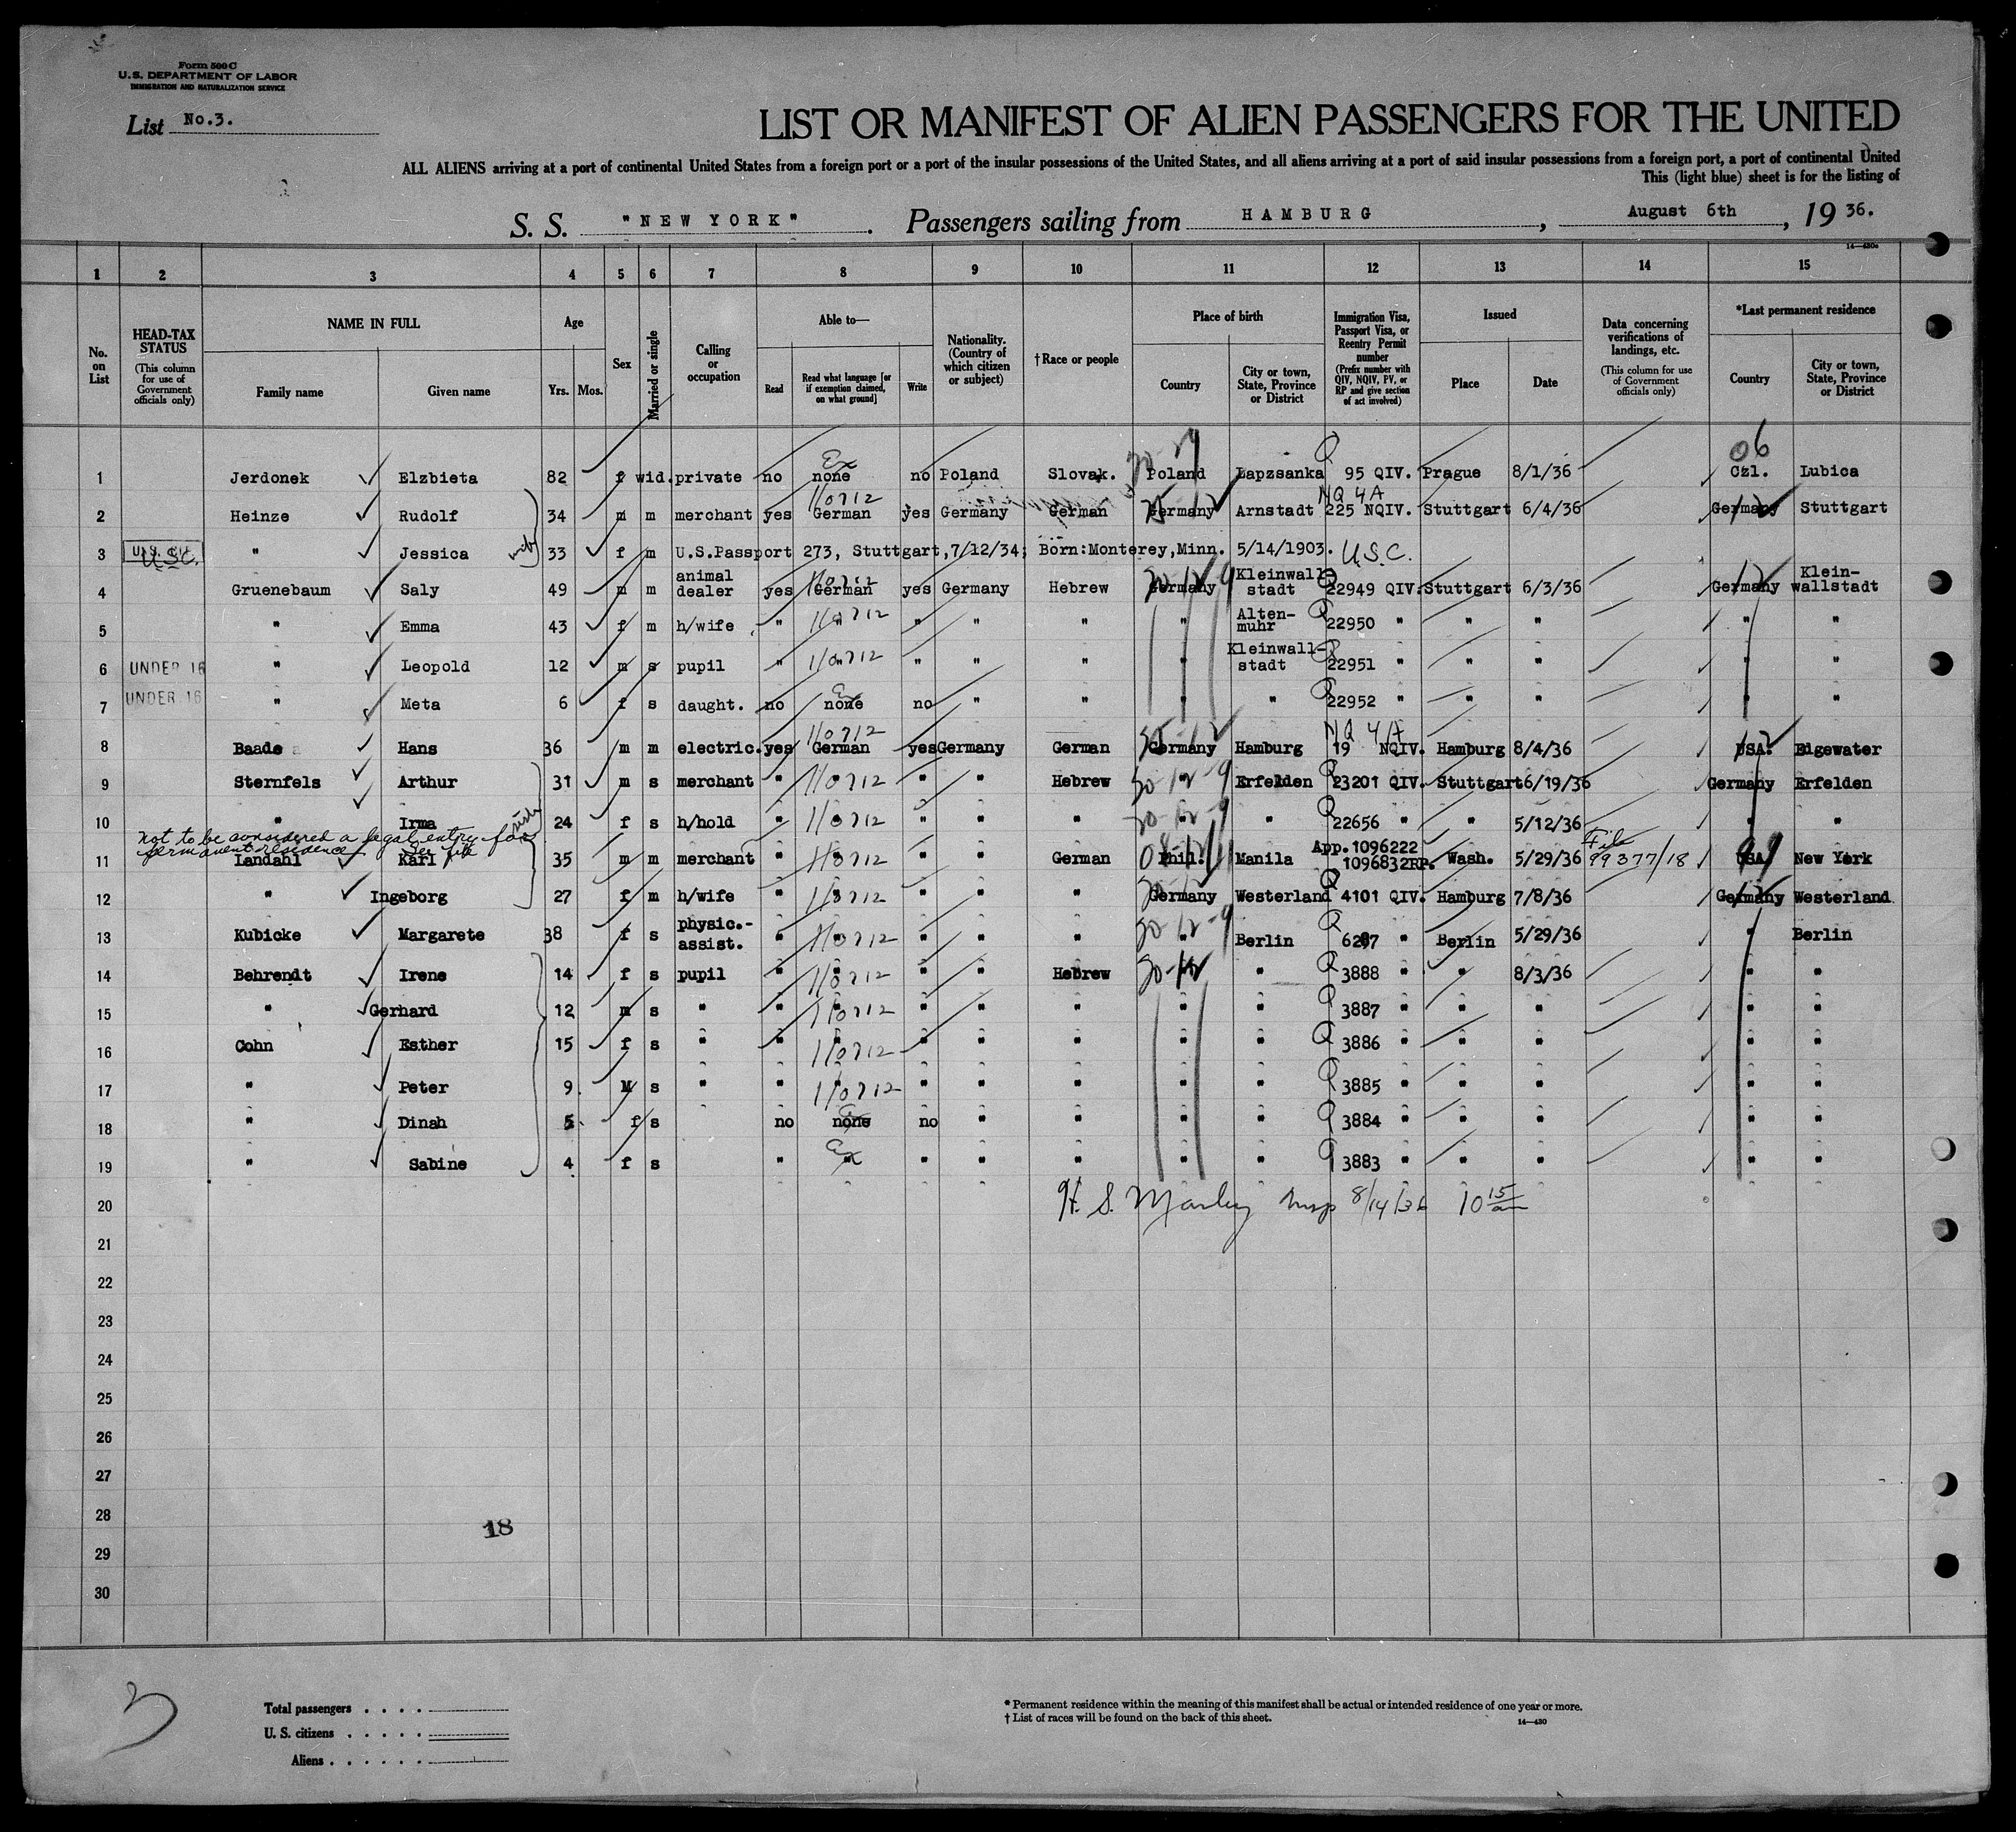 Form 500 C
U.S. DEPARTMENT OF LABOR
IMMIGRATION AND NATURALIZATION SERVICE
List No.3.
LIST OR MANIFEST OF ALIEN PASSENGERS FOR THE UNITED
ALL ALIENS arriving at a port of continental United States from a foreign port or a port of the insular possessions of the United States, and all aliens arriving at a port of said insular possessions from a foreign port, a port of continental United
This (light blue) sheet is for the listing of
S. S. "NEW YORK". Passengers sailing from HAMBURG, August 6th, 19 36.
14—430c
1 2 3 4 5 6 7 8 9 10 11 12 13 14 15
No. on List
HEAD-TAX STATUS (This column for use of Government officials only)
NAME IN FULL
Family name Given name
Age
Yrs. Mos.
Sex
Married or single
Calling or occupation
Able to—
Read Read what language [or if exemption claimed, on what ground] Write
Nationality. (Country of which citizen or subject)
†Race or people
Place of birth
Country City or town, State, Province or District
Immigration Visa, Passport Visa, or Reentry Permit number (Prefix number with QIV, NQIV, PV, or RP and give section of act involved)
Issued
Place Date
Data concerning verifications of landings, etc. (This column for use of Government officials only)
*Last permanent residence
Country City or town, State, Province or District
06
Ex
1 Jerdonek Elzbieta 82 f wid. private no none no Poland Slovak. Poland Lapzsanka 95 QIV. Prague 8/1/36 Czl. Lubica
NQ 4A
2 Heinze Rudolf 34 m m merchant yes German yes Germany German Germany Arnstadt 225 NQIV. Stuttgart 6/4/36 Germany Stuttgart
3 U.S.C. " Jessica wife 33 f m U.S.Passport 273, Stuttgart,7/12/34; Born:Monterey,Minn. 5/14/1903. U.S.C.
4 Gruenebaum Saly 49 m m animal dealer yes German yes Germany Hebrew Germany Kleinwall-stadt 22949 QIV. Stuttgart 6/3/36 Germany Klein-wallstadt
5 " Emma 43 f m h/wife " " " " " " Alten-muhr 22950 " " " " "
6 UNDER 16 " Leopold 12 m s pupil " " " " " " Kleinwall-stadt 22951 " " " " "
7 UNDER 16 " Meta 6 f s daught. no none no " " " " 22952 " " " " "
NQ 4/A
8 Baade Hans 36 m m electric. yes German yes Germany German Germany Hamburg 19 NQIV. Hamburg 8/4/36 USA. Edgewater
9 Sternfels Arthur 31 m s merchant " " " " Hebrew " Erfelden 23201 QIV. Stuttgart 6/19/36 Germany Erfelden
10 " Irma 24 f s h/hold " " " " " " " 22656 " " 5/12/36 " "
not to be considered a legal entry for permanent residence. See file
11 Landahl Karl 35 m m merchant " " " " German Phil. Manila App.1096222 1096832RP. Wash. 5/29/36 File 99377/18 USA New York
12 " Ingeborg 27 f m h/wife " " " " " Germany Westerland 4101 QIV. Hamburg 7/8/36 Germany Westerland
13 Kubicke Margarete 38 f s physic.-assist. " " " " " " Berlin 6297 " Berlin 5/29/36 " Berlin
14 Behrendt Irene 14 f s pupil " " " " Hebrew " " 3888 " " 8/3/36 " "
15 " Gerhard 12 m s " " " " " " " " 3887 " " " " "
16 Cohn Esther 15 f s " " " " " " " " 3886 " " " " "
17 " Peter 9 M s " " " " " " " " 3885 " " " " "
18 " Dinah 5 f s no none no " " " " 3884 " " " " "
19 " Sabine 4 f s " " " " " " " 3883 " " " " "
20 H. S. Insp 8/14/36 10 15 am
21
22
23
24
25
26
27
28
18
29
30
3
Total passengers
U. S. citizens
Aliens
* Permanent residence within the meaning of this manifest shall be actual or intended residence of one year or more.
† List of races will be found on the back of this sheet.
14—430